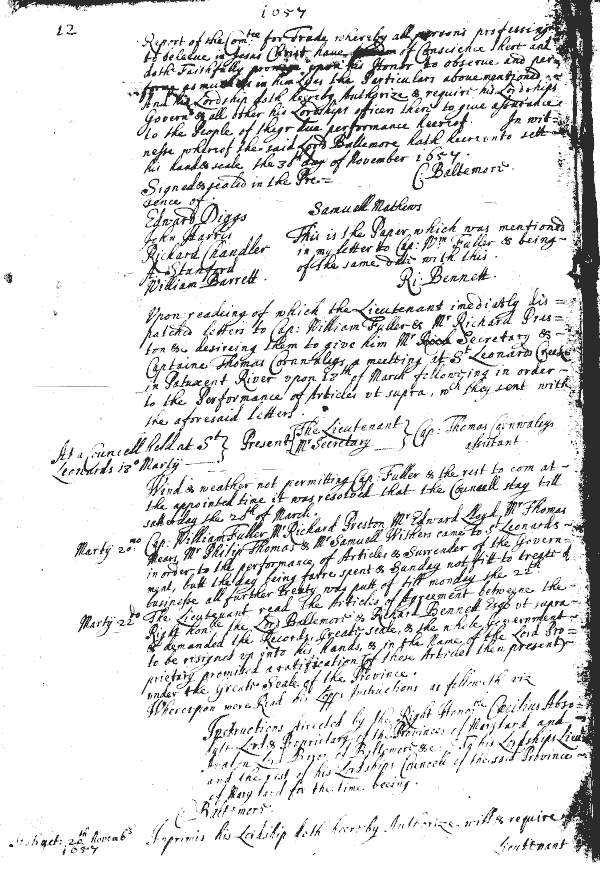 1657
12
Report of the Com:tee for Trade, whereby all persons professing
to beleeve in Jesus Christ have of Conscience there and
doth Faithfully promise upon his Honor to observe and per=
forme as much as in him lyes the Particulars abovementioned
And his Lordship doth hereby Authorize & require his Lordships
Govern:r & all other his Lordships officers there to give assurance
to the People of theyr due performance hereof. In wit=
nesse whereof the said Lord Baltemore hath hereunto sett
his hand & seale the 30th day of November 1657.
Signed & sealed in the Pre=
C Baltemore
sence of:
Edward Diggs
Samuell Mathews
John Harris
This is the Paper, which was mentioned
Richard Chandler
in my letter to Cap: Wm Fuller & being
A: Stanford
of the same date with this.
William Barrett.
Ri: Bennett.
Upon reading of which the Lieutenant imediatly dis=
patched letters to Cap: William Fuller & Mr Richard Pres=
ton &c desireing them to give him Mr Secretary &
Captaine Thomas Cornwaleys a meeting at St Leonards Creeke
in Patuxent River upon 18th of March following in order
to the Performance of Articles ut supra, wch they sent with
the aforesaid letters.
At a Councell held at St
Leonards 18° Martij
Present
The Lieutenant
Mr Secretary
Cap: Thomas Cornwaleys
assistant
Wind & weather not permitting Cap: Fuller & the rest to com at
the appointed time it was resolved that the Councell stay till
saterday the 20th of March.
Martij 20mo
Cap: William Fuller Mr Richard Preston Mr Edward Lloyd, Mr Thomas
Meares Mr Philip Thomas & Mr Samuell Withers came to St Leonards
in order to the performance of Articles & Surrender of the Govern=
ment, butt the day being farre spent & Sunday not fitt to treate of
businesse all further treaty was putt of till monday the 22th
Martij 22do
The Lieutenant read the Articles of Agreement betweene the
Right honble the Lord Baltemore & Richard Bennett Esqr ut supra
& demanded the Records, Great seale, & the whole Government
to be resigned up into his hands, & in the Name of the Lord Pro=
prietary promised a ratification of those Articles then present
under the Greate Seale of the Province.
Whereupon were Read his Lopps Instructions as followeth viz
Instructions directed by the Right Honoble Cæcilius Abso=
lute Lord & Proprietary of the Provinces of Maryland and
Avalon Lord Baron of Baltemore &c. To his Lordships Lieut
and the rest of his Lordships Councell of the said Province
of Maryland for the time beeing.
C Baltemore
20th Novemb:
1657
Inprimis his Lordship doth hereby Authorize will & require
Lieutenant